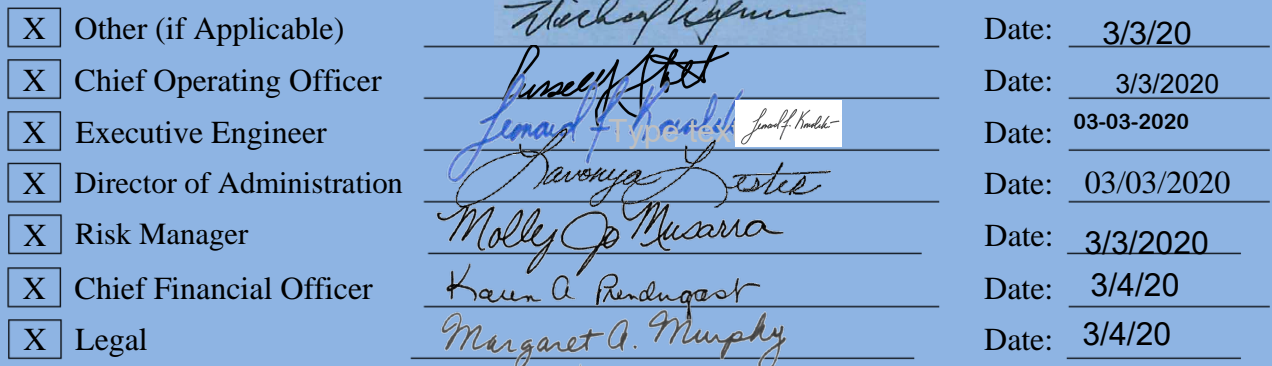 X Other (if Applicable) Michael Date: 3/3/20
X Chief Operating Officer Russell J Date: 3/3/2020
X Executive Engineer Leonard F. Kowalski Type tex Date: 03-03-2020
X Director of Administration Lavonya Lester Date: 03/03/2020
X Risk Manager Molly Jo Musarra Date: 3/3/2020
X Chief Financial Officer Karen A Prendergast Date: 3/4/20
X Legal Margaret A. Murphy Date: 3/4/20